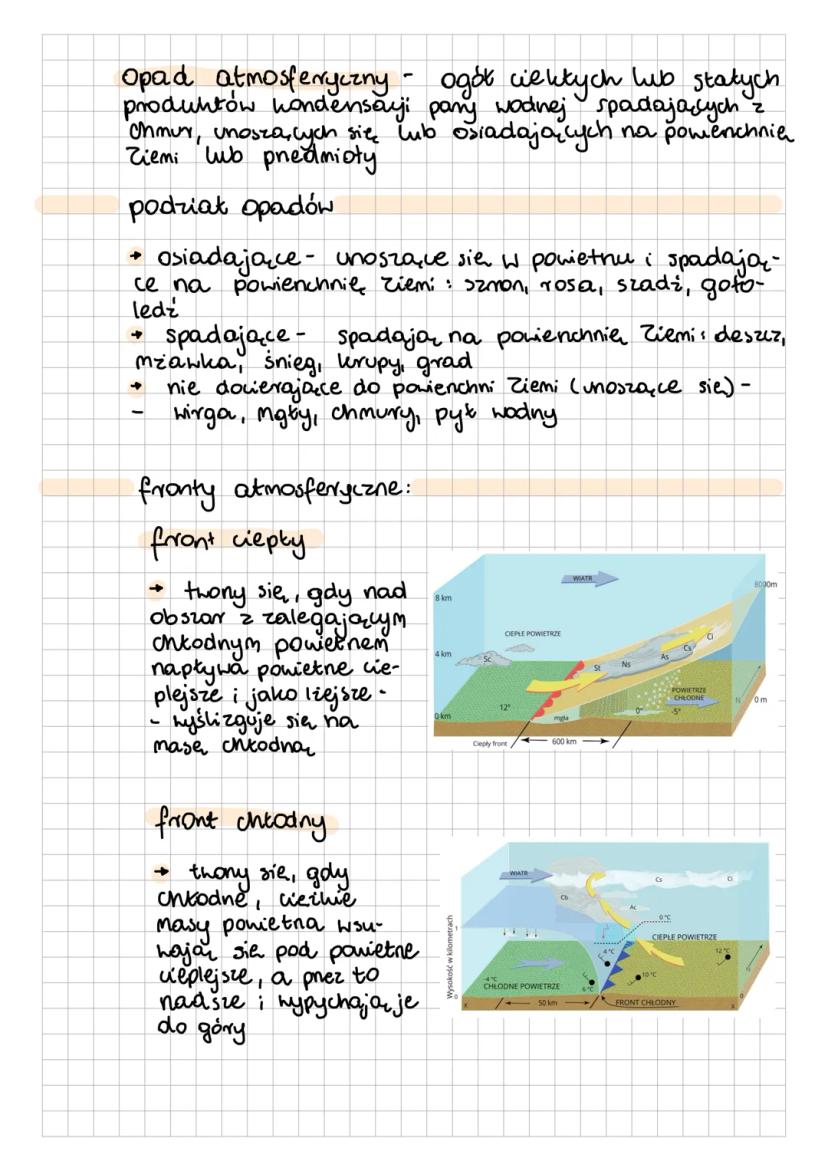 Opad atmosferyczny - ogół ciekłych lub stałych
produktów kondensacji pary wodnej spadających z
chmur, unoszących się lub osiadających na powierzchnię
Ziemi lub przedmioty
podział opadów
→ osiadające - unoszące się w powietrzu i spadają-
ce na powierzchnię ziemi: szron, rosa, szadź, goło-
ledź
→ spadające - spadają na powierzchnię Ziemi: deszcz,
mżawka, śnieg, krupy, grad
→ nie docierające do powierzchni Ziemi (unoszące się) -
- wirga, mgły, chmury, pył wodny
fronty atmosferyczne:
front ciepły
→ tworzy się, gdy nad
obszar z zalegającym
chłodnym powietrzem
napływa powietrze cie-
plejsze i jako lżejsze -
- wyślizguje się na
masę chłodną
WIATR
8000m
8 km
CIEPŁE POWIETRZE
Ci
4 km
Sc
St
Ns
As
Cs
POWIETRZE
CHŁODNE
N
0 m
0 km
12°
mgła
0°
-5°
Ciepły front
600 km
front chłodny
→ tworzy się, gdy
chłodne, cięższe
masy powietrza wsu-
wają się pod powietrze
cieplejsze, a przez to
nadsze i wypychają je
do góry
WIATR
Cs
Ci
Cb
Ac
0 °C
1
CIEPŁE POWIETRZE
Wysokość w kilometrach
4 °C
12 °C
-4 °C
10 °C
CHŁODNE POWIETRZE
6 °C
0
0
x
50 km
FRONT CHŁODNY